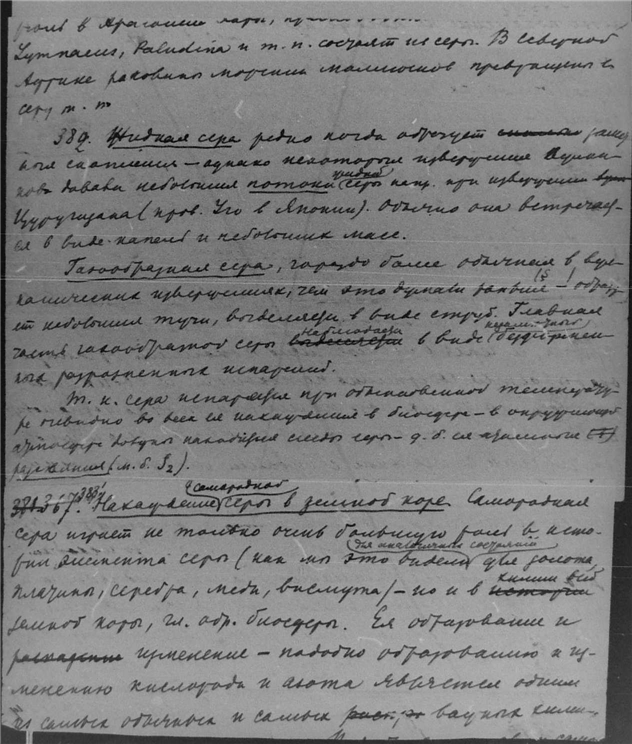 роль в
Lymnaeus, Paludina и т. п. состоят из серы. В Северной
Африке раковины морских моллюсков превращены в
серу
389. Жидкая сера редко когда образует
скопления – однако некоторые извержения вулка-
нов давали небольшие потоки жидкой серы напр. при извержении
(пров. Уго в Японии). Обычно она встречает-
ся в виде капель и небольших масс.
Газообразная сера, гораздо более обычная в вул-
канических извержениях, чем это думали раньше (§ ) – образу-
ет небольшие тучи, выделяясь в виде струй. Главная
часть газообразной серы наблюдается в виде
ных разрозненных испарений.
Т. к. сера испаряется при обыкновенной температу-
ре очевидно во всех ея нахождениях в биосфере – в окружающей
атмосфере должны находиться следы серы – д. б. ея
разрежения (м. б. S2).
Нахождение самородной серы в земной коре. Самородная
сера играет не только очень большую роль в исто-
рии элемента серы (как мы это видели для аналогичных состояний для золота,
платины, серебра, меди, висмута) – но и в химии
земной коры, гл. обр. биосферы. Ея образование и
изменение – подобно образованию и из-
менению кислорода и азота является одним
из самых обычных и самых важных хими-